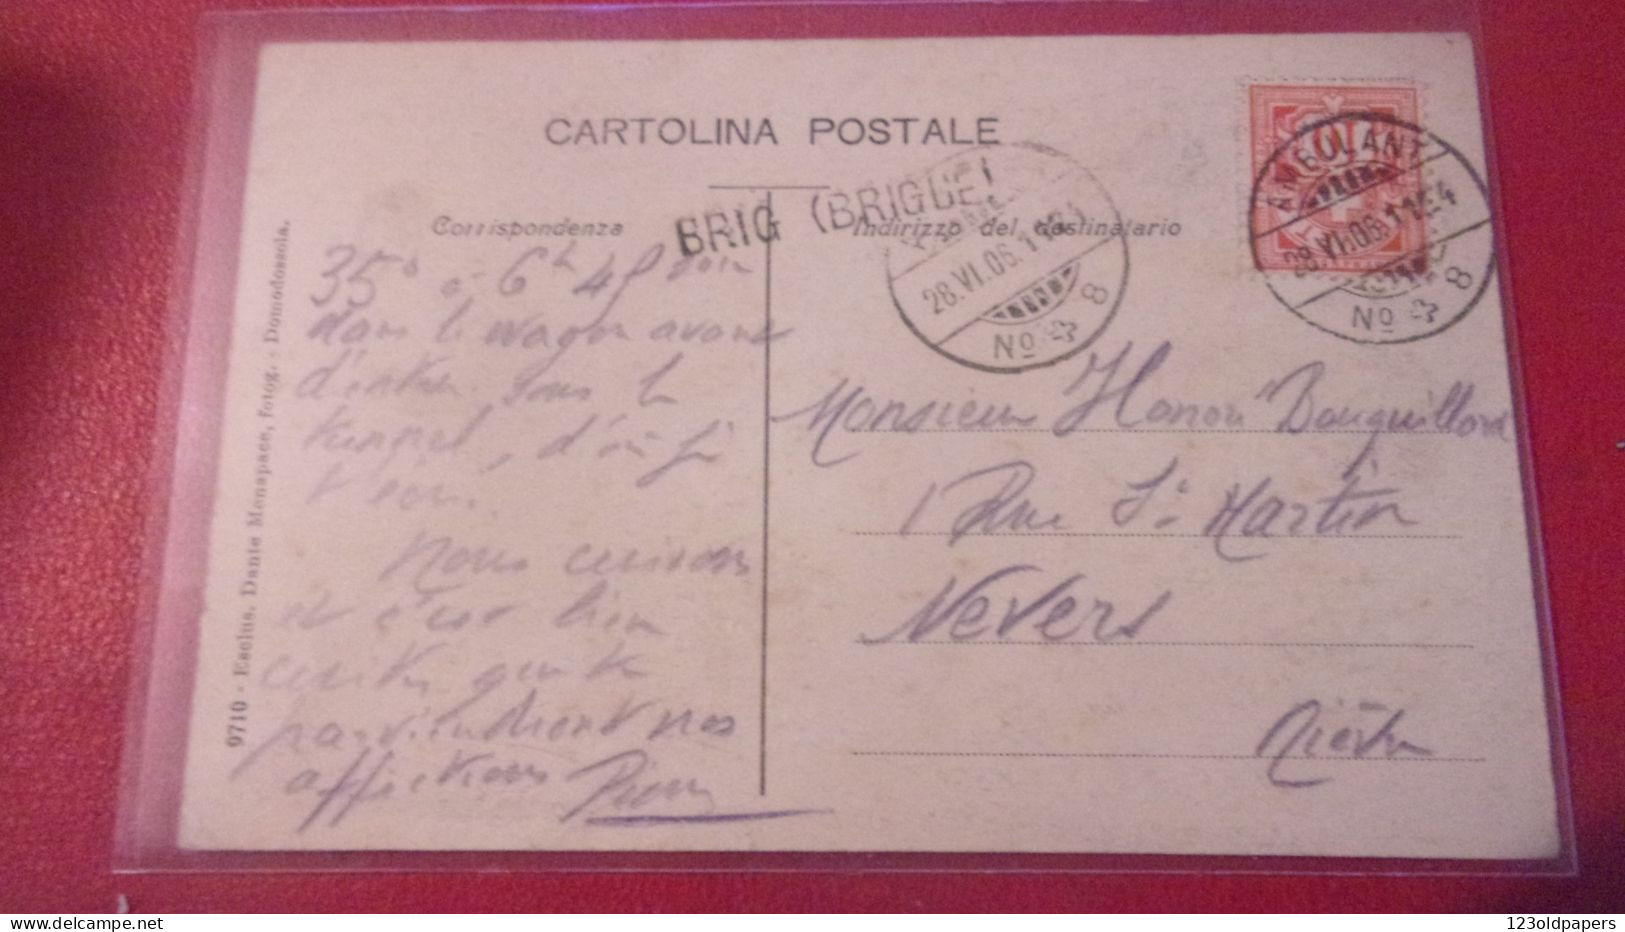 CARTOLINA POSTALE
Corrispondenza
Indirizzo del destinatario
BRIG (BRIGUE)
28.VI.06.11
No 8
AMBULANT
28.VI.06.11 E4
No 8
9710 - Esclus. Dante Menapace, fotog. - Domodossola.
35° à 6h 45 soir
dans le wagon avant
d'entrer sous le
tunnel, d'où je
t'écris.
Nous cuisons
et c'est bien
cuites que te
parviendront nos
affections Pierre
Monsieur Honoré Bouquillard
1 Rue St Martin
Nevers
Nièvre
123oldpapers